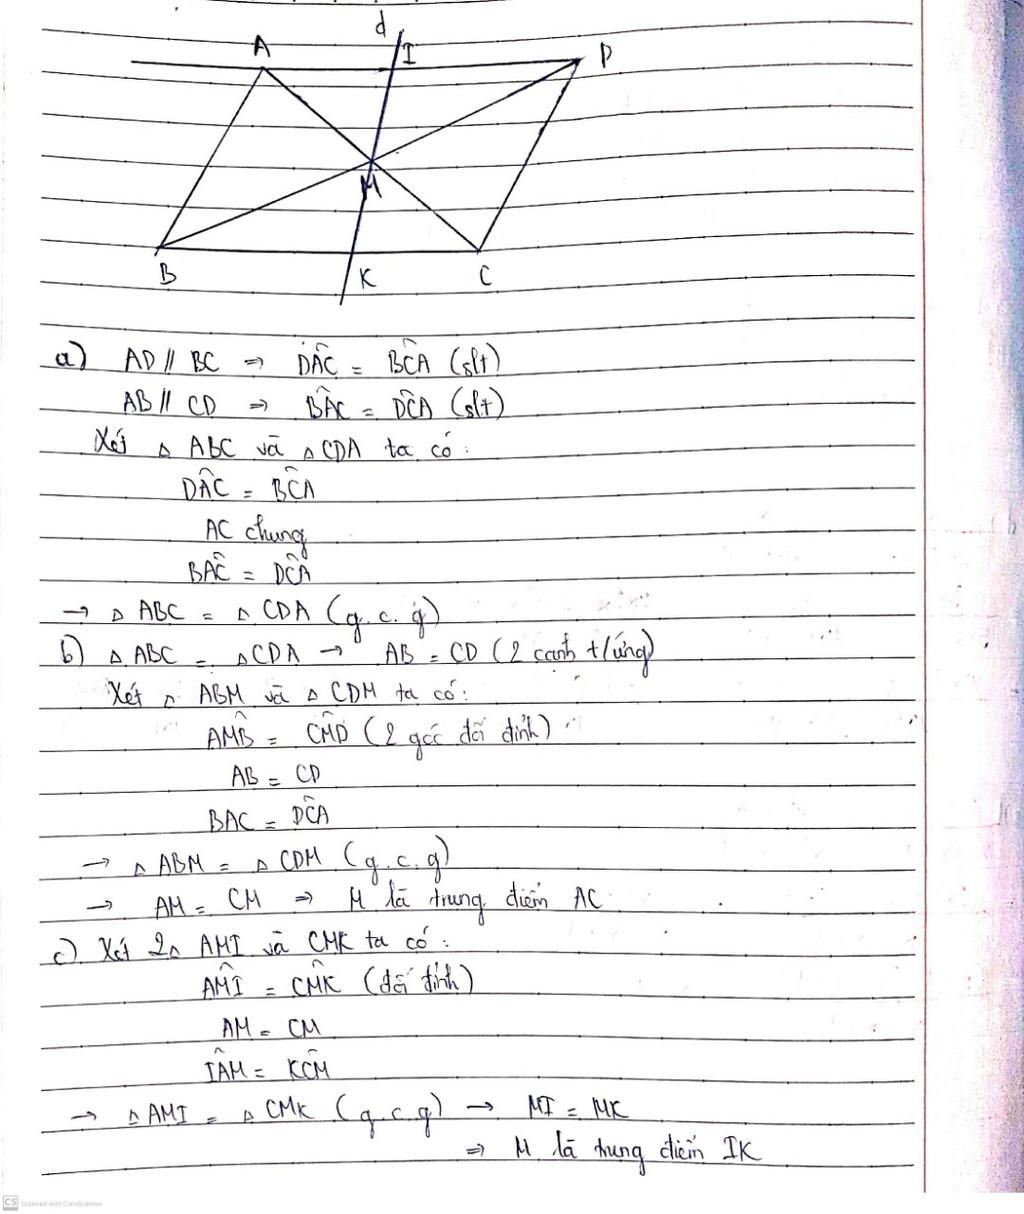 d
A I D
M
B K C
a) AD // BC => DÂC = BĈA (slt)
AB // CD => BÂC = DĈA (slt)
Xét △ ABC và △ CDA ta có:
DÂC = BĈA
AC chung
BÂC = DĈA
→ △ ABC = △ CDA (g.c.g)
b) △ ABC = △ CDA → AB = CD (2 cạnh t/ứng)
Xét △ ABM và △ CDM ta có:
AM̂B = CM̂D (2 góc đối đỉnh)
AB = CD
BAC = DĈA
→ △ ABM = △ CDM (g.c.g)
→ AM = CM => M là trung điểm AC
c) Xét 2△ AMI và CMK ta có:
AM̂I = CM̂K (đối đỉnh)
AM = CM
IÂM = KĈM
→ △ AMI = △ CMK (g.c.g) → MI = MK
=> M là trung điểm IK
CS Scanned with CamScanner